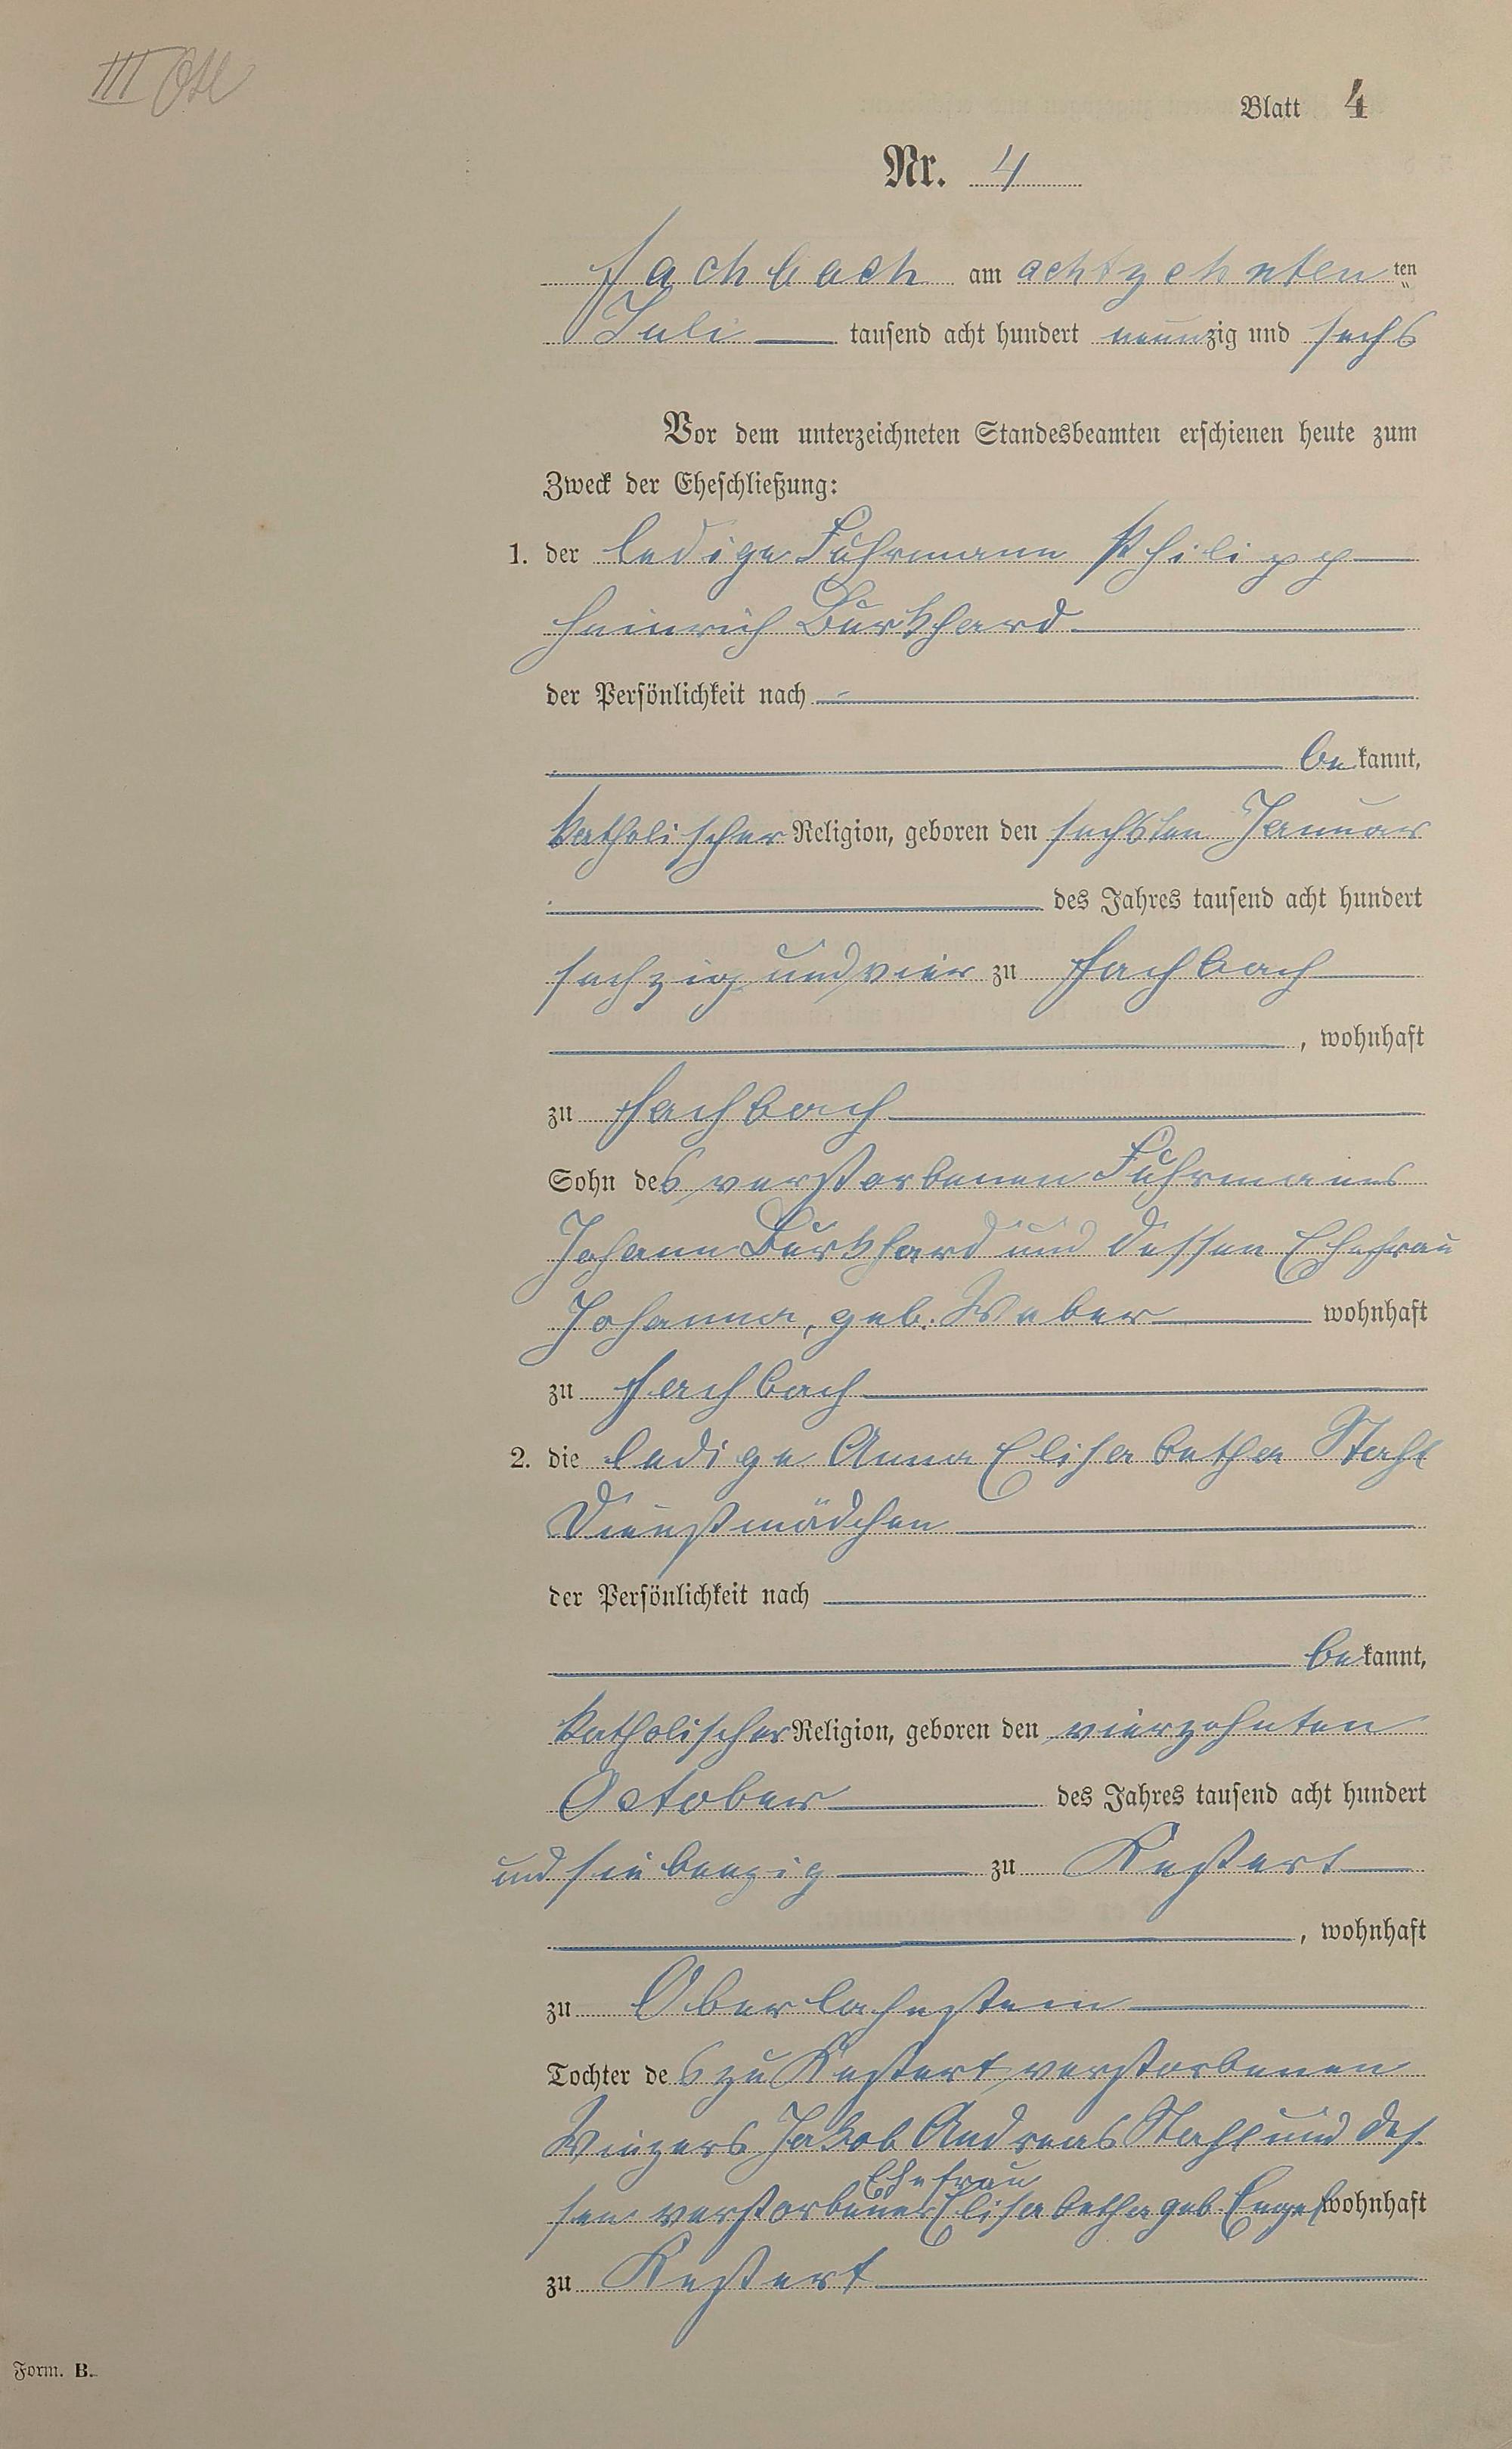 III
Blatt 4
Nr. 4
Fachbach am achtzehnten ten
Juli tausend acht hundert neunzig und sechs
Vor dem unterzeichneten Standesbeamten erschienen heute zum
Zweck der Eheschließung:
1. der ledige Fuhrmann Philipp
Heinrich Burkhard
der Persönlichkeit nach
bekannt,
katholischer Religion, geboren den sechsten Januar
des Jahres tausend acht hundert
sechzig und vier zu Fachbach
, wohnhaft
zu Fachbach
Sohn des verstorbenen Fuhrmanns
Johann Burkhard und dessen Ehefrau
Johanna, geb. Weber wohnhaft
zu Fachbach
2. die ledige Anna Elisabetha Stahl
Dienstmädchen
der Persönlichkeit nach
bekannt,
katholischer Religion, geboren den vierzehnten
October des Jahres tausend acht hundert
und siebenzig zu Kestert
, wohnhaft
zu Oberlahnstein
Tochter des zu Kestert verstorbenen
Winzers Jakob Andreas Stahl und des-
sen verstorbener Ehefrau Elisabetha geb. Engel wohnhaft
zu Kestert
Form. B.